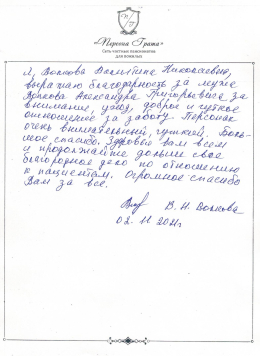 «Первая Грата»
Сеть частных пансионатов
для пожилых
Я, Волкова Валентина Николаевна,
выражаю благодарность за мужа
Волкова Александра Григорьевича за
внимание, уход, доброе и чуткое
отношение за заботу. Персонал
очень внимательный, чуткий. Боль-
шое спасибо. Здоровья вам всем
и продолжайте дальше свое
благородное дело по отношению
к пациентам. Огромное спасибо
Вам за все.
В. Н. Волкова
02. 11